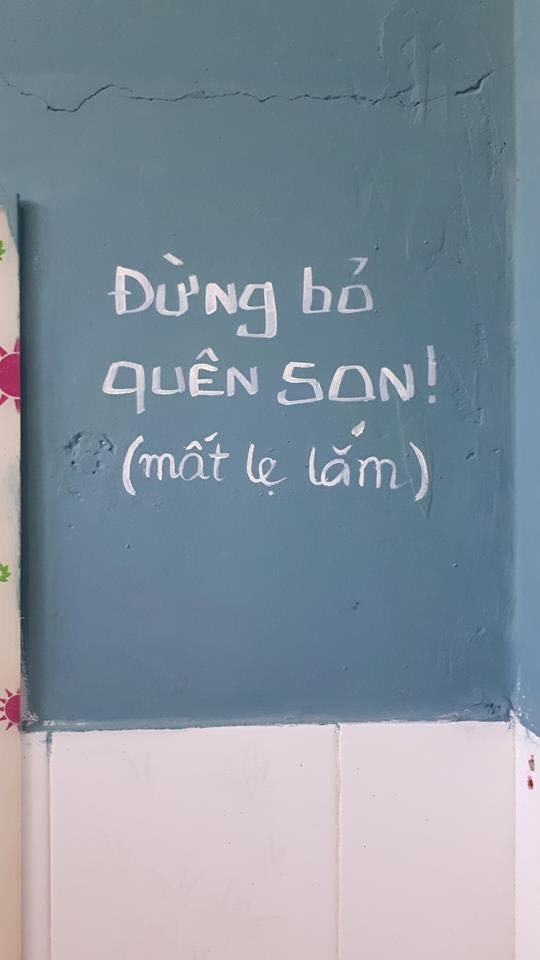 Đừng bỏ
QUÊN SON!
(mất lẹ lắm)